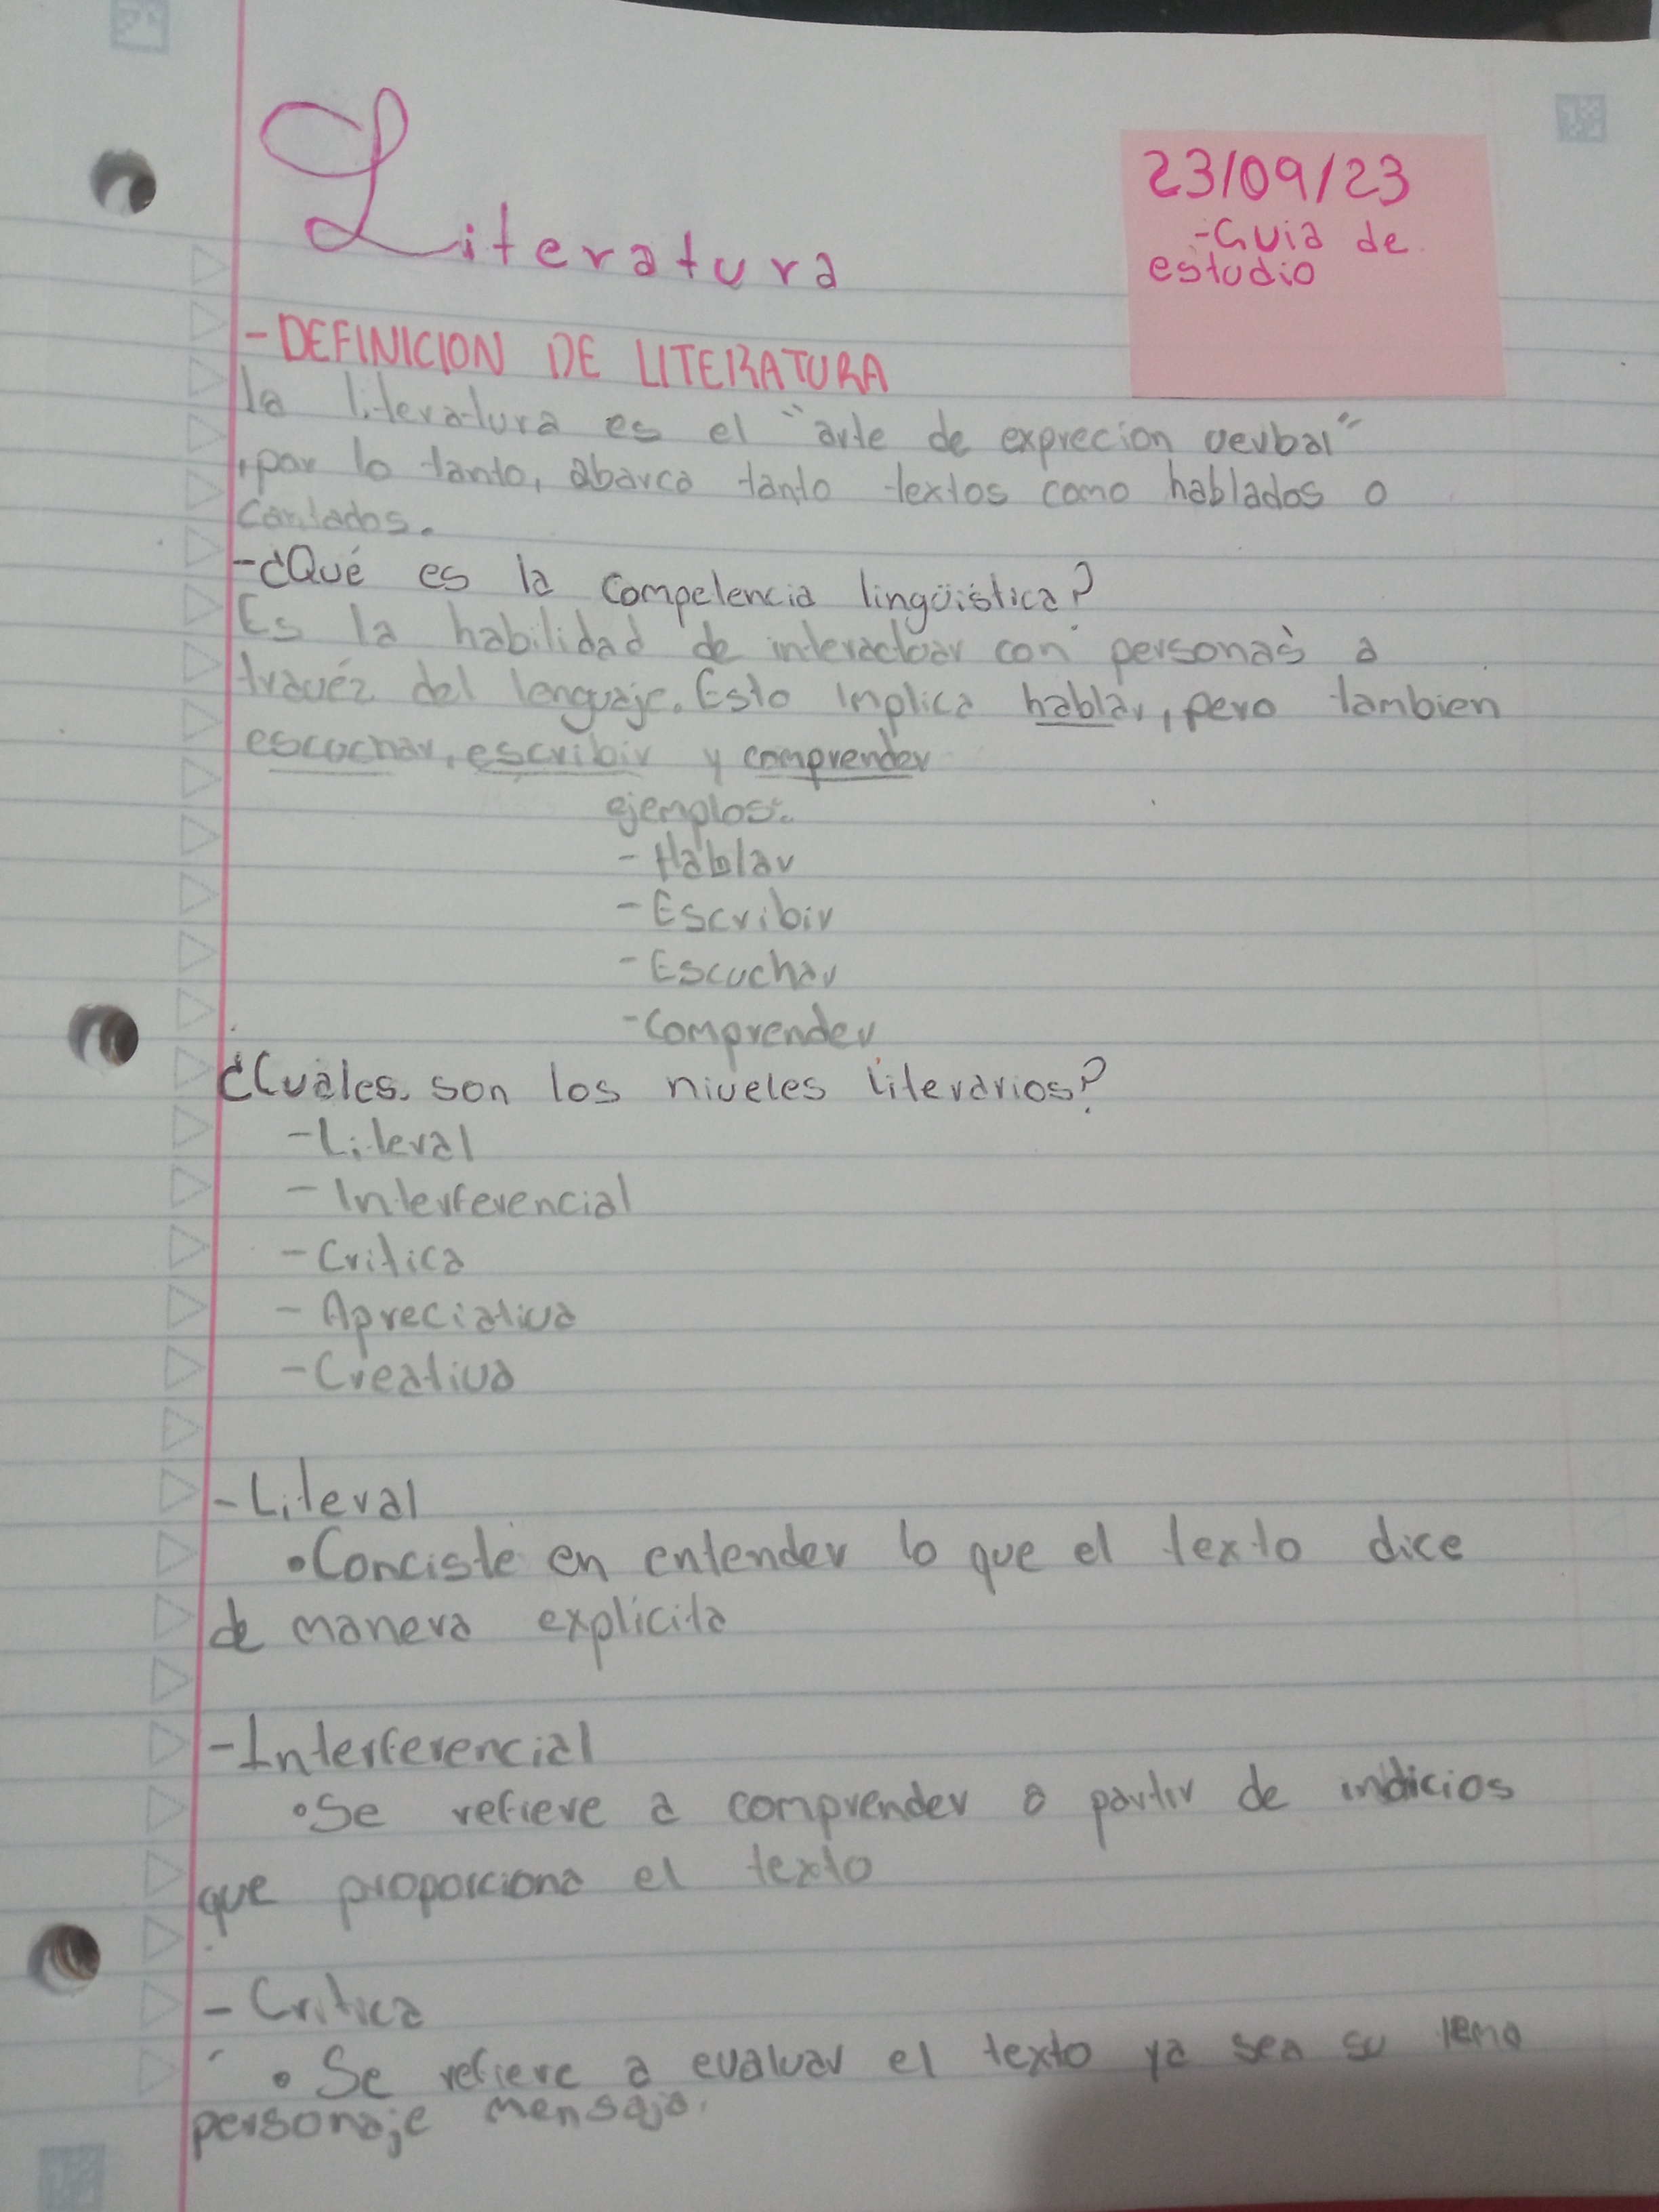 Literatura
23/09/23
-Guia de
estudio
-DEFINICION DE LITERATURA
la literatura es el "arte de exprecion verbal"
,por lo tanto, abarca tanto textos como hablados o
cantados.
-¿Qué es la competencia lingüistica?
Es la habilidad de interactuar con personas a
travéz del lenguaje. Esto implica hablar, pero tambien
escuchar, escribir y comprender
ejemplos:
-Hablar
-Escribir
-Escuchar
-Comprender
¿Cuáles son los niveles literarios?
-Literal
-Interferencial
-Critica
-Apreciativa
-Creativa
-Literal
•Conciste en entender lo que el texto dice
de manera explicita
-Interferencial
•Se refiere a comprender a partir de indicios
que proporciona el texto
-Critica
•Se refiere a evaluar el texto ya sea su tema
personaje mensaje.